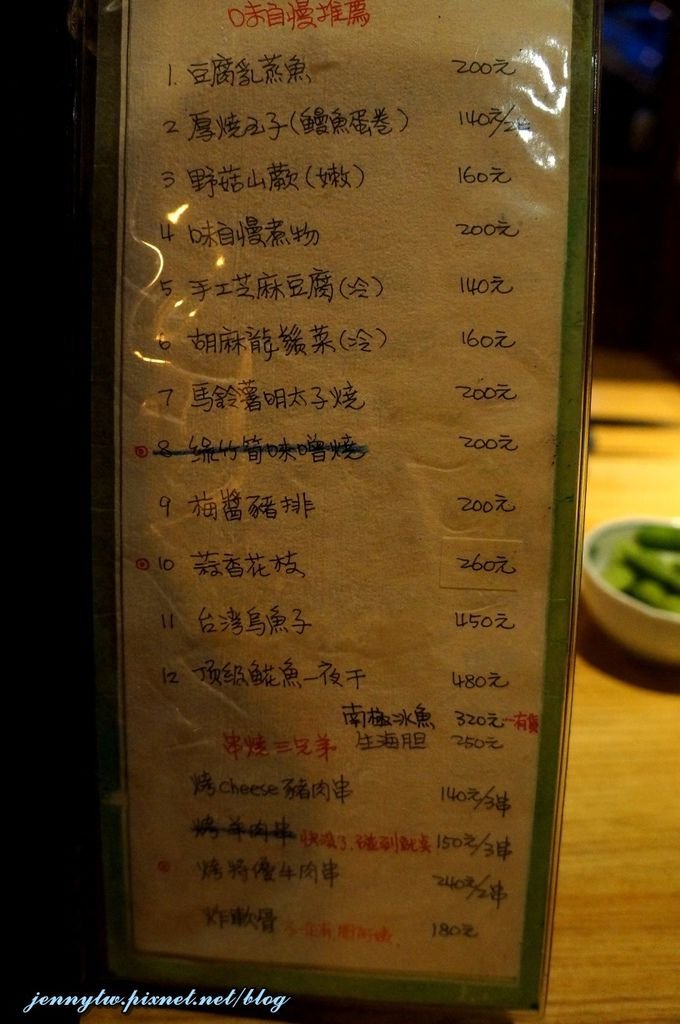 味自慢推薦
1. 豆腐乳蒸魚 200元
2 厚燒玉子(鰻魚蛋卷) 140元/
3 野菇山蕨(嫩) 160元
4 味自慢煮物 200元
5 手工芝麻豆腐(冷) 140元
6 胡麻龍鬚菜(冷) 160元
7 馬鈴薯明太子燒 200元
8 綠竹筍味噌燒 200元
9 梅醬豬排 200元
10 蒜香花枝 260元
11 台灣烏魚子 450元
12 頂級鯱魚一夜干 480元
南極冰魚 320元
生海胆 250元
串燒三兄弟
烤cheese豬肉串 140元/3串
烤羊肉串 150元/3串
烤特優牛肉串 240元/2串
炸軟骨 180元
jennytw.pixnet.net/blog